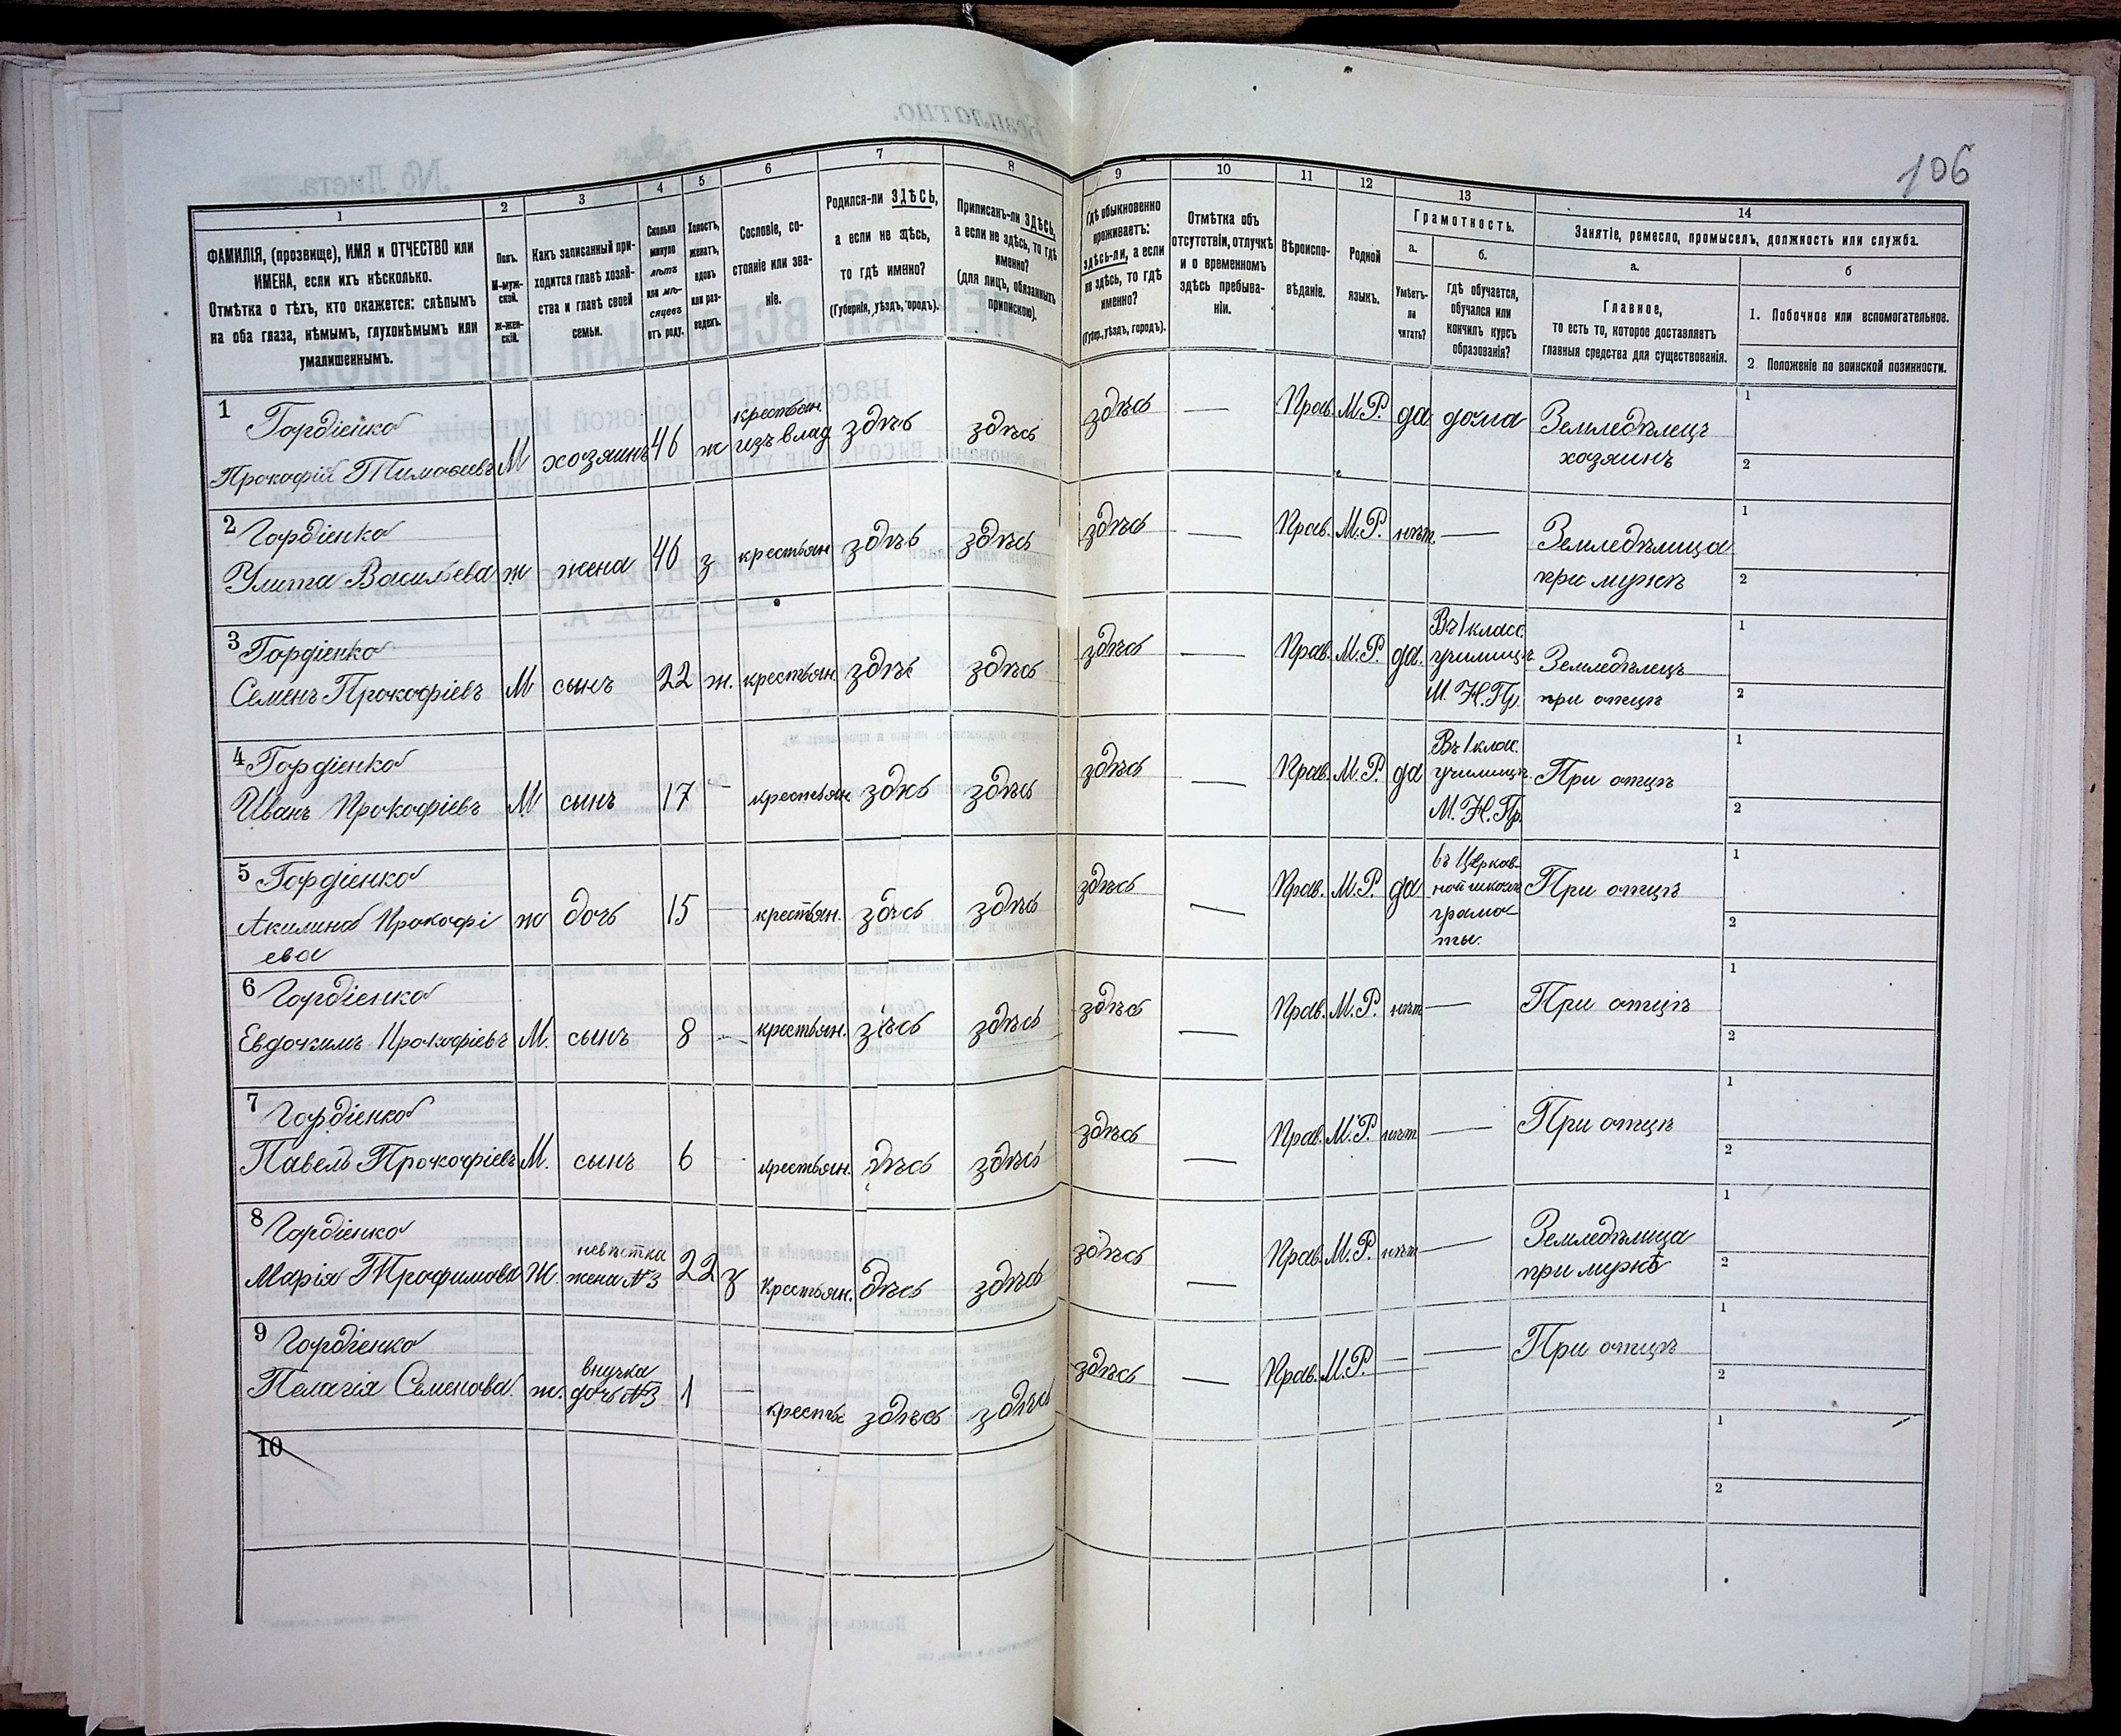 106
1
2
3
4
5
6
7
8
9
10
11
12
13
14
ФАМИЛІЯ, (прозвище), ИМЯ и ОТЧЕСТВО или
ИМЕНА, если ихъ нѣсколько.
Отмѣтка о тѣхъ, кто окажется: слѣпымъ
на оба глаза, нѣмымъ, глухонѣмымъ или
умалишеннымъ.
Полъ.
М-муж-
ской.
ж-жен-
скій.
Какъ записанный при-
ходится главѣ хозяй-
ства и главѣ своей
семьи.
Сколько
минуло
лѣтъ
или мѣ-
сяцевъ
отъ роду.
Холостъ,
женатъ,
вдовъ
или раз-
веденъ.
Сословіе, со-
стояніе или зва-
ніе.
Родился-ли ЗДѢСЬ,
а если не здѣсь,
то гдѣ именно?
(Губернія, уѣздъ, городъ).
Приписанъ-ли ЗДѢСЬ,
а если не здѣсь, то гдѣ
именно?
(для лицъ, обязанныхъ
припискою).
Гдѣ обыкновенно
проживаетъ:
здѣсь-ли, а если
не здѣсь, то гдѣ
именно?
(Губер., уѣздъ, городъ).
Отмѣтка объ
отсутствіи, отлучкѣ
и о временномъ
здѣсь пребыва-
ніи.
Вѣроиспо-
вѣданіе.
Родной
языкъ.
Грамотность.
а.
Умѣетъ-
ли
читать?
б.
гдѣ обучается,
обучался или
кончилъ курсъ
образованія?
Занятіе, ремесло, промыселъ, должность или служба.
а.
Главное,
то есть то, которое доставляетъ
главныя средства для существованія.
б
1. Побочное или вспомогательное.
2 Положеніе по воинской повинности.
1 Гордіенко
Прокофій Тимофеевъ М хозяинъ 46 ж крестьян. изъ влад здѣсь здѣсь здѣсь — Прав. М.Р. да дома Земледѣлецъ
хозяинъ
1
2
2 Гордіенко
Улита Васильева ж жена 46 з крестьян здѣсь здѣсь здѣсь — Прав. М.Р. нѣт. — Земледѣлица
при мужѣ
1
2
3 Гордіенко
Семенъ Прокофіевъ М сынъ 22 ж. крестьян. здѣсь здѣсь здѣсь — Прав. М.Р. да. Въ 1 класс. училищѣ М. Н. Пр. Земледѣлецъ
при отцѣ
1
2
4 Гордіенко
Иванъ Прокофіевъ М сынъ 17 — крестьян здѣсь здѣсь здѣсь — Прав. М.Р. да Въ 1 клас. училищѣ. М. Н. Пр. При отцѣ
1
2
5 Гордіенко
Акилина Прокофі
ева ж дочь 15 — крестьян. здѣсь здѣсь здѣсь — Прав. М.Р. да въ Церков-
ной школѣ
грамо
ты. При отцѣ
1
2
6 Гордіенко
Евдокимъ Прокофіевъ М. сынъ 8 — крестьян. здѣсь здѣсь здѣсь — Прав. М.Р. нѣт — При отцѣ
1
2
7 Гордіенко
Павелъ Прокофіевъ М. сынъ 6 — крестьян. здѣсь здѣсь здѣсь — Прав. М.Р. нѣт — При отцѣ
1
2
8 Гордіенко
Марія Трофимова Ж. невѣстка
жена №3 22 з Крестьян. здѣсь здѣсь здѣсь — Прав. М.Р. нѣт — Земледѣлица
при мужѣ
1
2
9 Гордіенко
Пелагія Семенова. ж. внучка
дочь №3 1 — крестья здѣсь здѣсь здѣсь — Прав. М.Р. — — При отцѣ
1
2
10
1
2